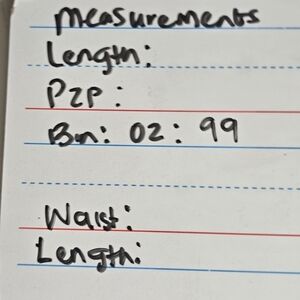 measurements
Length:
P2P:
Bin: 02: 99
Waist:
Length: